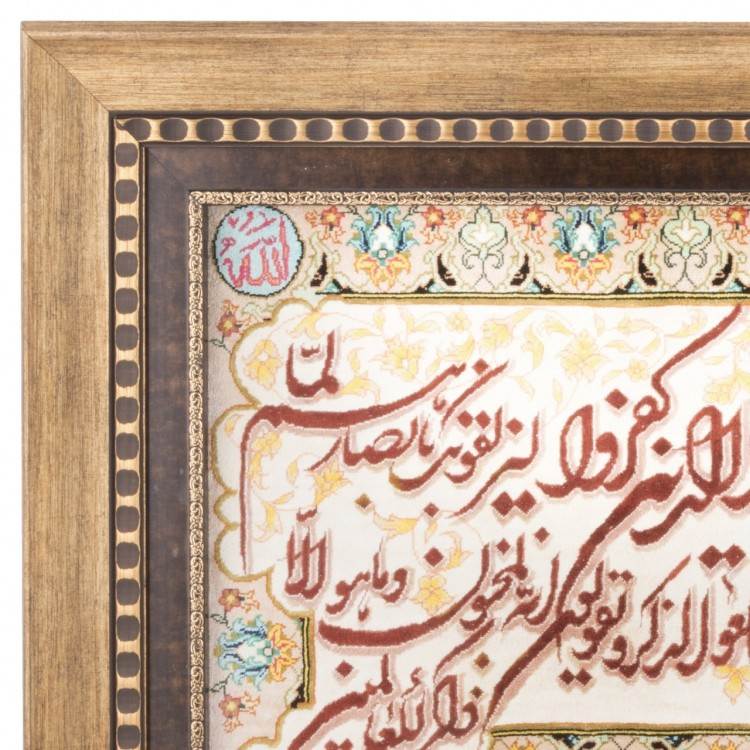 الله
الذين كفروا ليزلقونك بأبصارهم لما
سمعوا الذكر ويقولون إنه لمجنون وما هو إلا
ذكر للعالمين